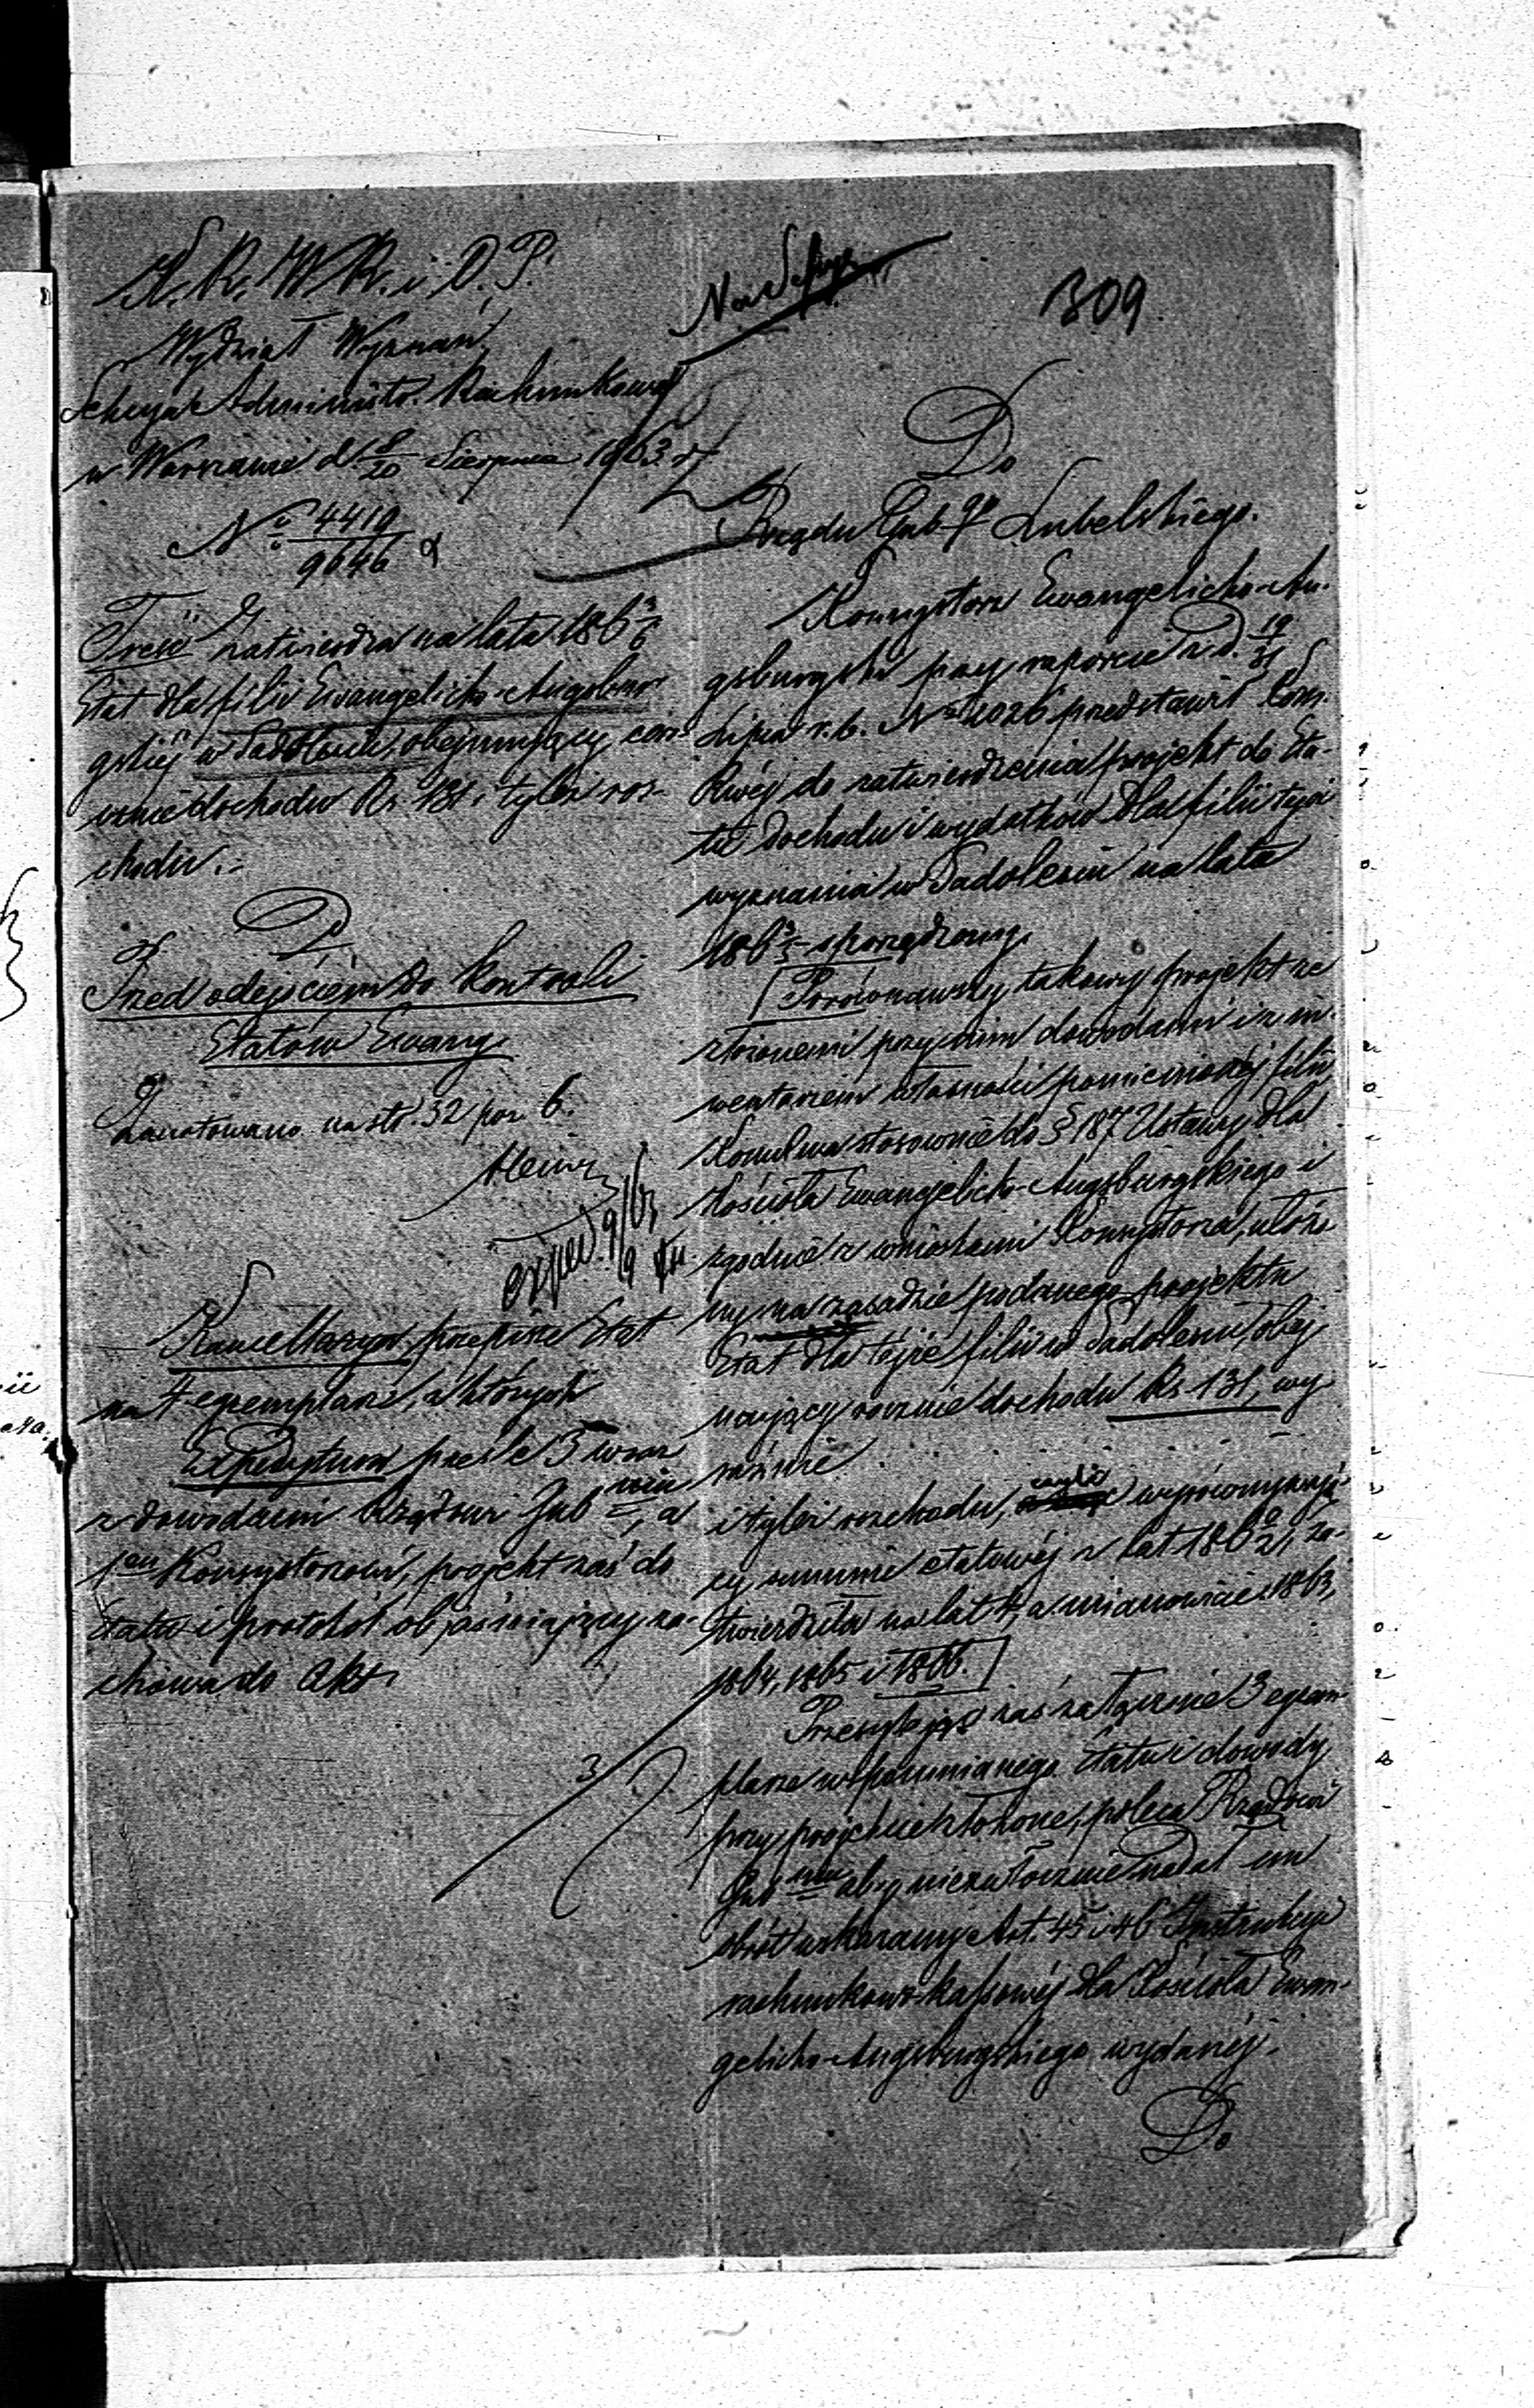 K. R. W. R. i O. P.
Wydział Wyznań
Sekcya Administr. Rachunkowa
w Warszawie d. 8/20 Sierpnia 1863 r.
No 4419/9646
309
Treść
zatwierdza na lata 186 3/6
Etat dla filii Ewangelicko-Augsbur-
gskiej w Sadoleniu, obejmujący
rocznie dochodu Rs. 131 i tyleż roz-
chodu.
Przed odejściem do Kontroli
Etatów Ewang.
zanotowano na str. 32 poz. 6.
exped. 9/9
Kancellarya przepisze Etat
na 4 egzemplarze, z których
Expedytura prześle 3 wraz
z dowodami Rządowi Gub nemu, a
1en Konsystorzowi, projekt zaś do
Etatu i protokół objaśniający za-
chowa do Akt.
Do
Rządu Gub go Lubelskiego.
Konsystorz Ewangelicko-Au-
gsburgski przy raporcie z d. 19/31
Lipca r. b. No 2026 przedstawił Kom.
Rwéj do zatwierdzenia projekt do Eta-
tu dochodu i wydatków dla filii tegoż
wyznania w Sadoleniu na lata
186 sporządzony.
Porównawszy takowy projekt ze
złożonemi przy nim dowodami i z in-
wentarzem własności pomienionéj filii
stosownie do § 187 Ustawy dla
Kościoła Ewangelicko-Augsburgskiego i
zgodnie z wnioskami Konsystorza, ułożo-
ny na zasadzie podanego projektu
Etat dla tejże filii w Sadoleniu, obej-
mujący rocznie dochodu Rs. 131, wy-
raźnie
i tyleż rozchodu, czyli wyrównywają-
cy summie etatowéj z lat 186 0/2, za-
twierdziła na lat 4, a mianowicie 1863,
1864, 1865 i 1866.
Przesyłając zaś załącznie 3 egzem-
plarze wspomnianego Etatu i dowody
przy projekcie złożone, poleca Rządowi
Gub nemu aby niezwłocznie nadał im
obrót wskazany Art. 45 i 46 Instrukcyi
rachunkowo-kassowéj dla Kościoła Ewan-
gelicko-Augsburgskiego wydanéj.
Do